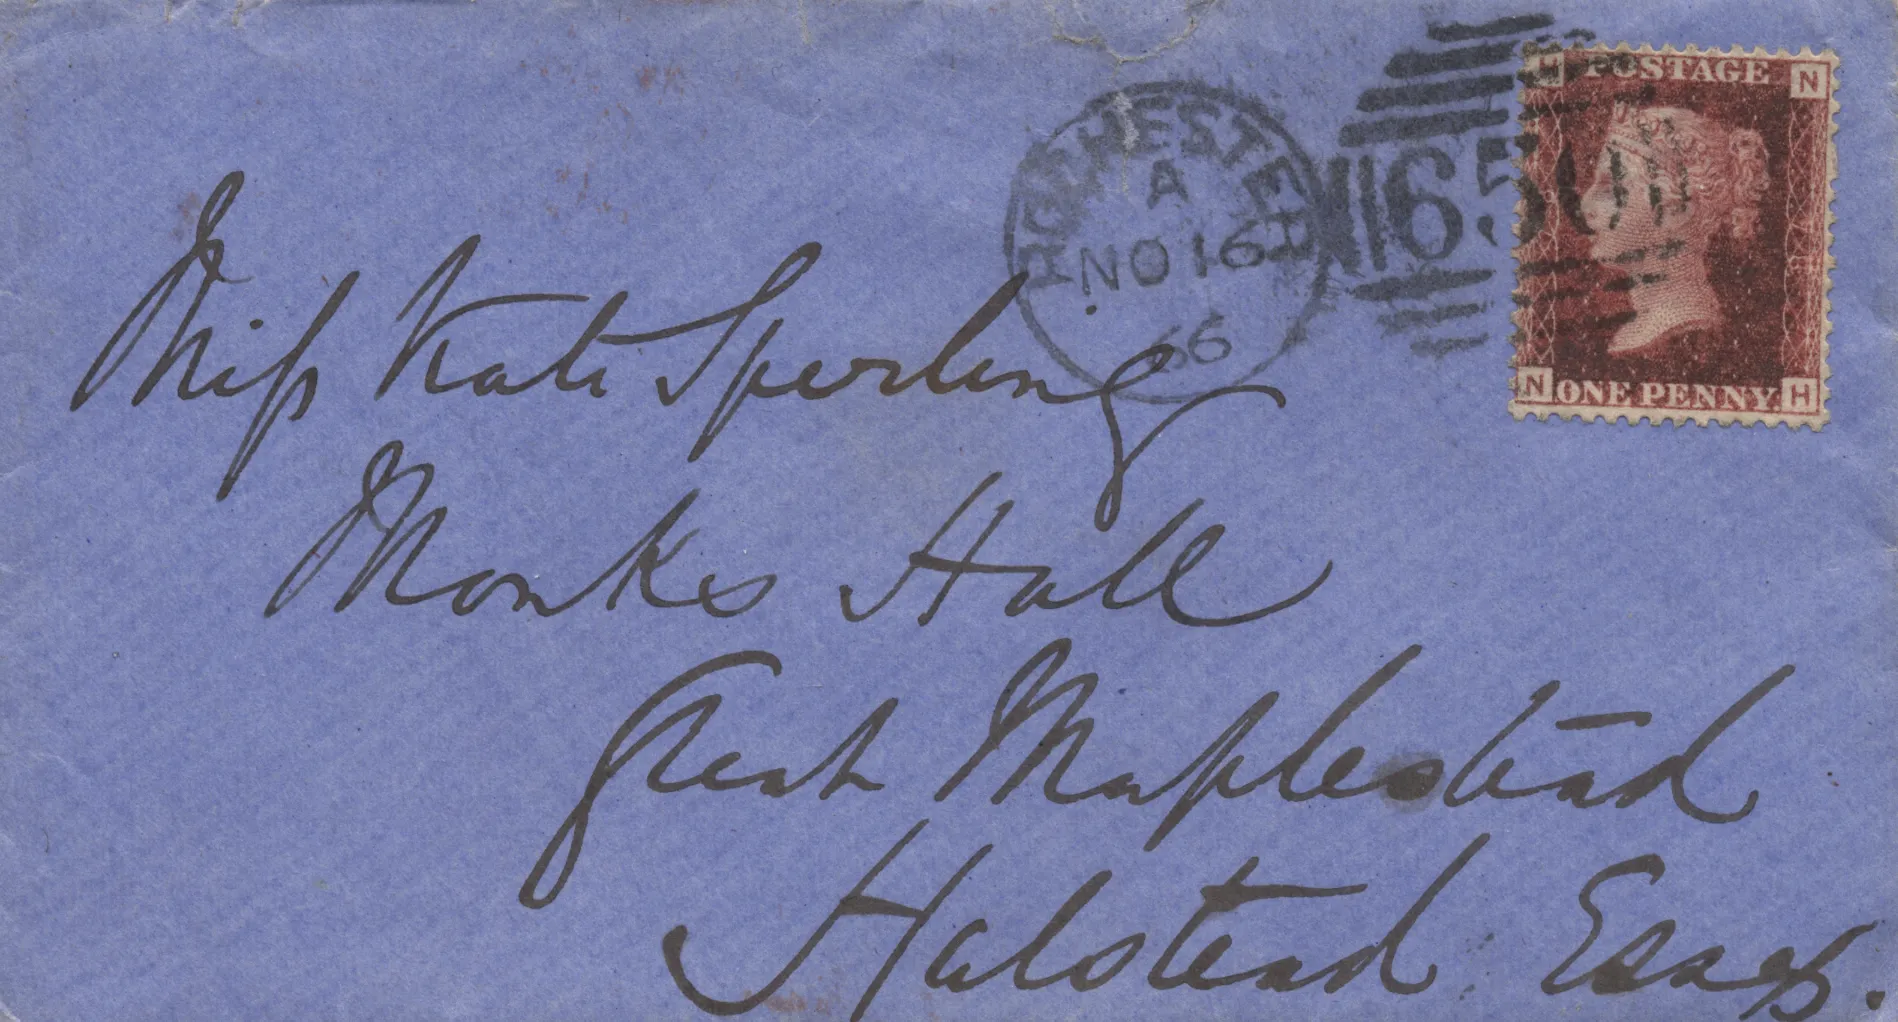 H POSTAGE N
ROCHESTER
A
NO 16
66
650
N ONE PENNY. H
Miss Kate Sperling
Monks Hall
Great Maplestead
Halstead Essex.